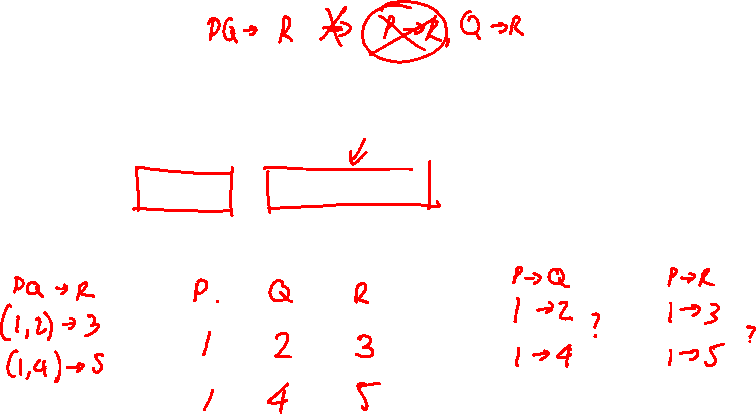 PQ → R ⇏ P → R, Q → R
PQ → R
(1,2) → 3
(1,4) → 5
P. Q R
1 2 3
1 4 5
P → Q
1 → 2
1 → 4
?
P → R
1 → 3
1 → 5
?